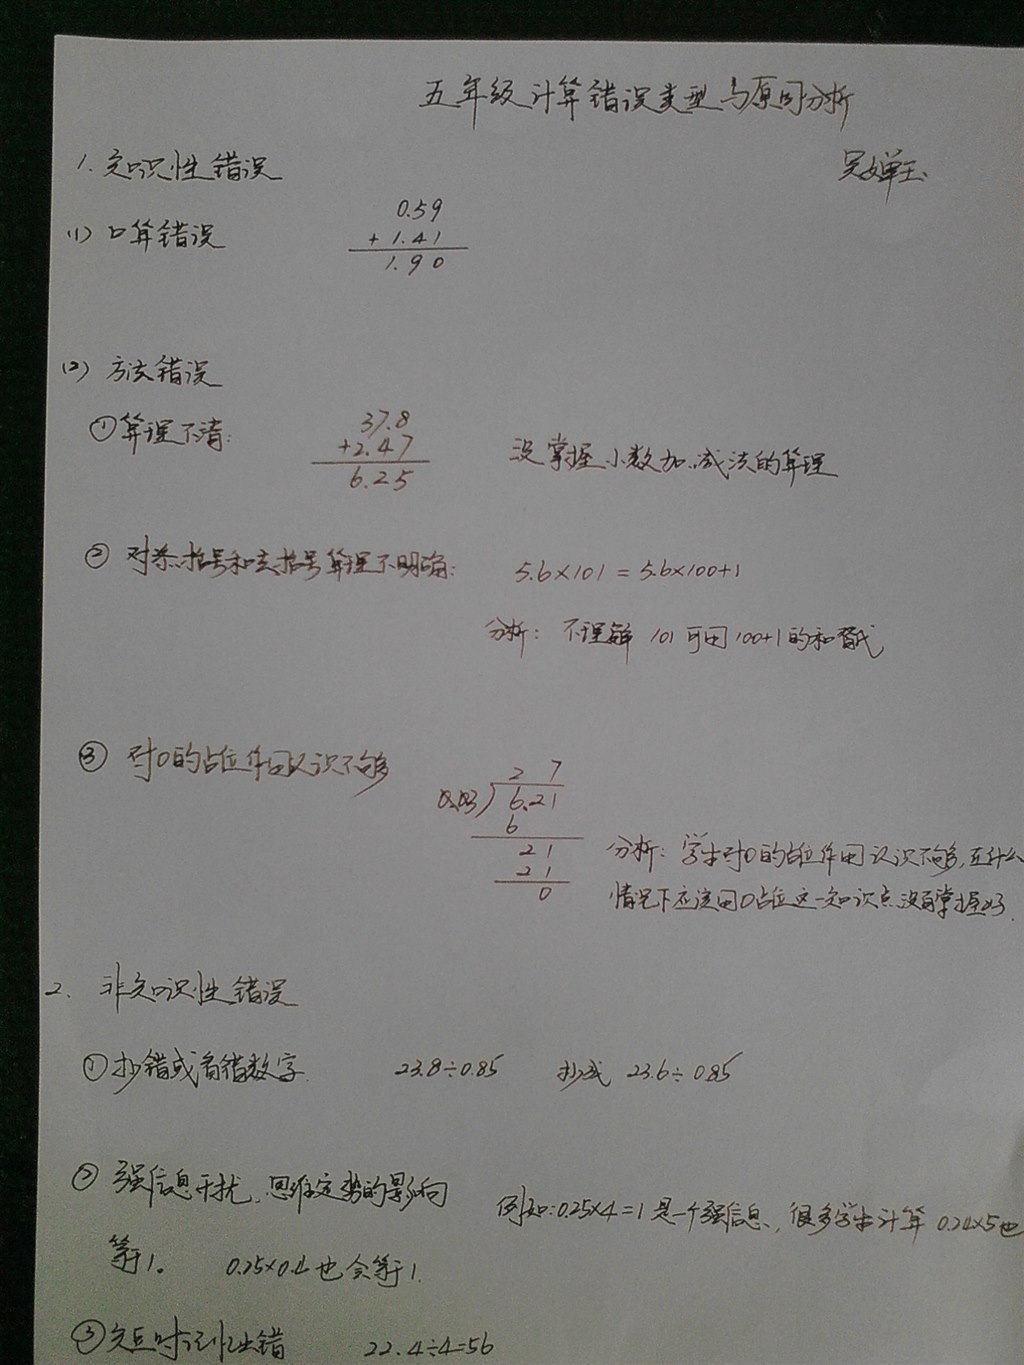 五年级计算错误类型与原因分析
吴婵玉
1.知识性错误
(1) 口算错误
0.59
+ 1.41
1.90
(2) 方法错误
①算理不清:
37.8
+2.47
6.25
没掌握小数加、减法的算理
② 对添括号和去括号算理不明确:
5.6×101=5.6×100+1
分析: 不理解 101 可用 100+1的和替代
③ 对0的占位作用认识不够
2 7
0.03)6.21
6
21
21
0
分析: 学生对0的占位作用认识不够,在什么
情况下应该用0占位这一知识点没有掌握好.
2. 非知识性错误
①抄错或看错数字.
23.8÷0.85 抄成 23.6÷0.85
② 强信息干扰、思维定势的影响
例如:0.25×4=1是一个强信息、很多学生计算 0.24×5也
等于1。 0.25×0.4也会等于1.
③短时记忆出错 22.4÷4=56